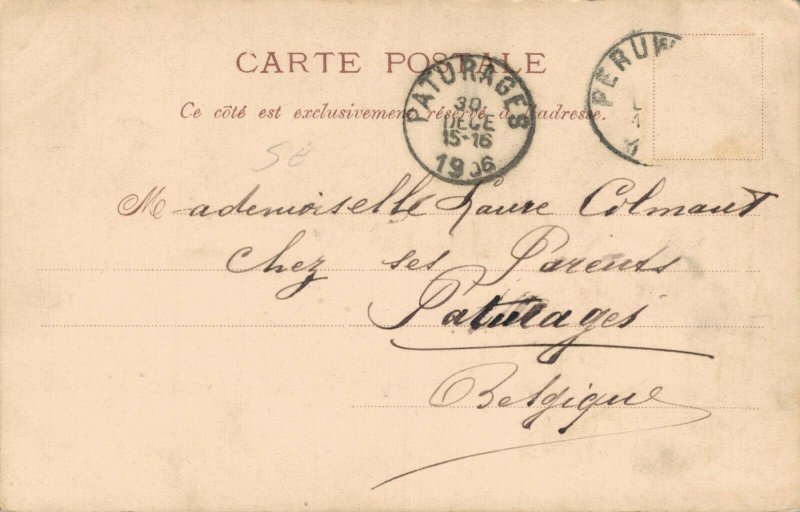 CARTE POSTALE
Ce côté est exclusivement réservé à l'adresse.
PATURAGES
30
DECE
15-16
1906
PERUW
58
Mademoiselle Laure Colmant
Chez ses Parents
Paturages
Belgique